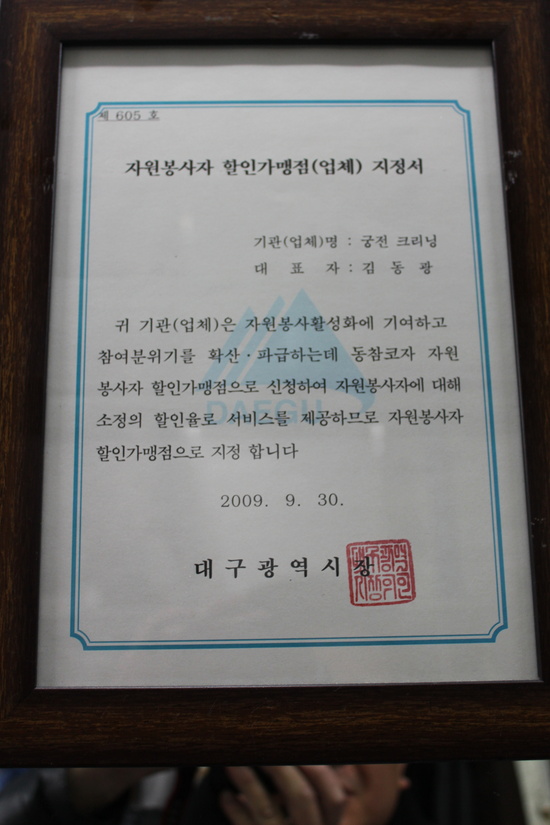 제 605 호
자원봉사자 할인가맹점(업체) 지정서
기관(업체)명 : 궁전 크리닝
대 표 자 : 김 동 광
귀 기관(업체)은 자원봉사활성화에 기여하고
참여분위기를 확산·파급하는데 동참코자 자원
봉사자 할인가맹점으로 신청하여 자원봉사자에 대해
소정의 할인율로 서비스를 제공하므로 자원봉사자
할인가맹점으로 지정 합니다
DAEGU
2009. 9. 30.
대 구 광 역 시 장